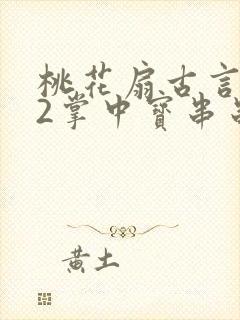 桃花扇古言
2掌中寶串
黄土